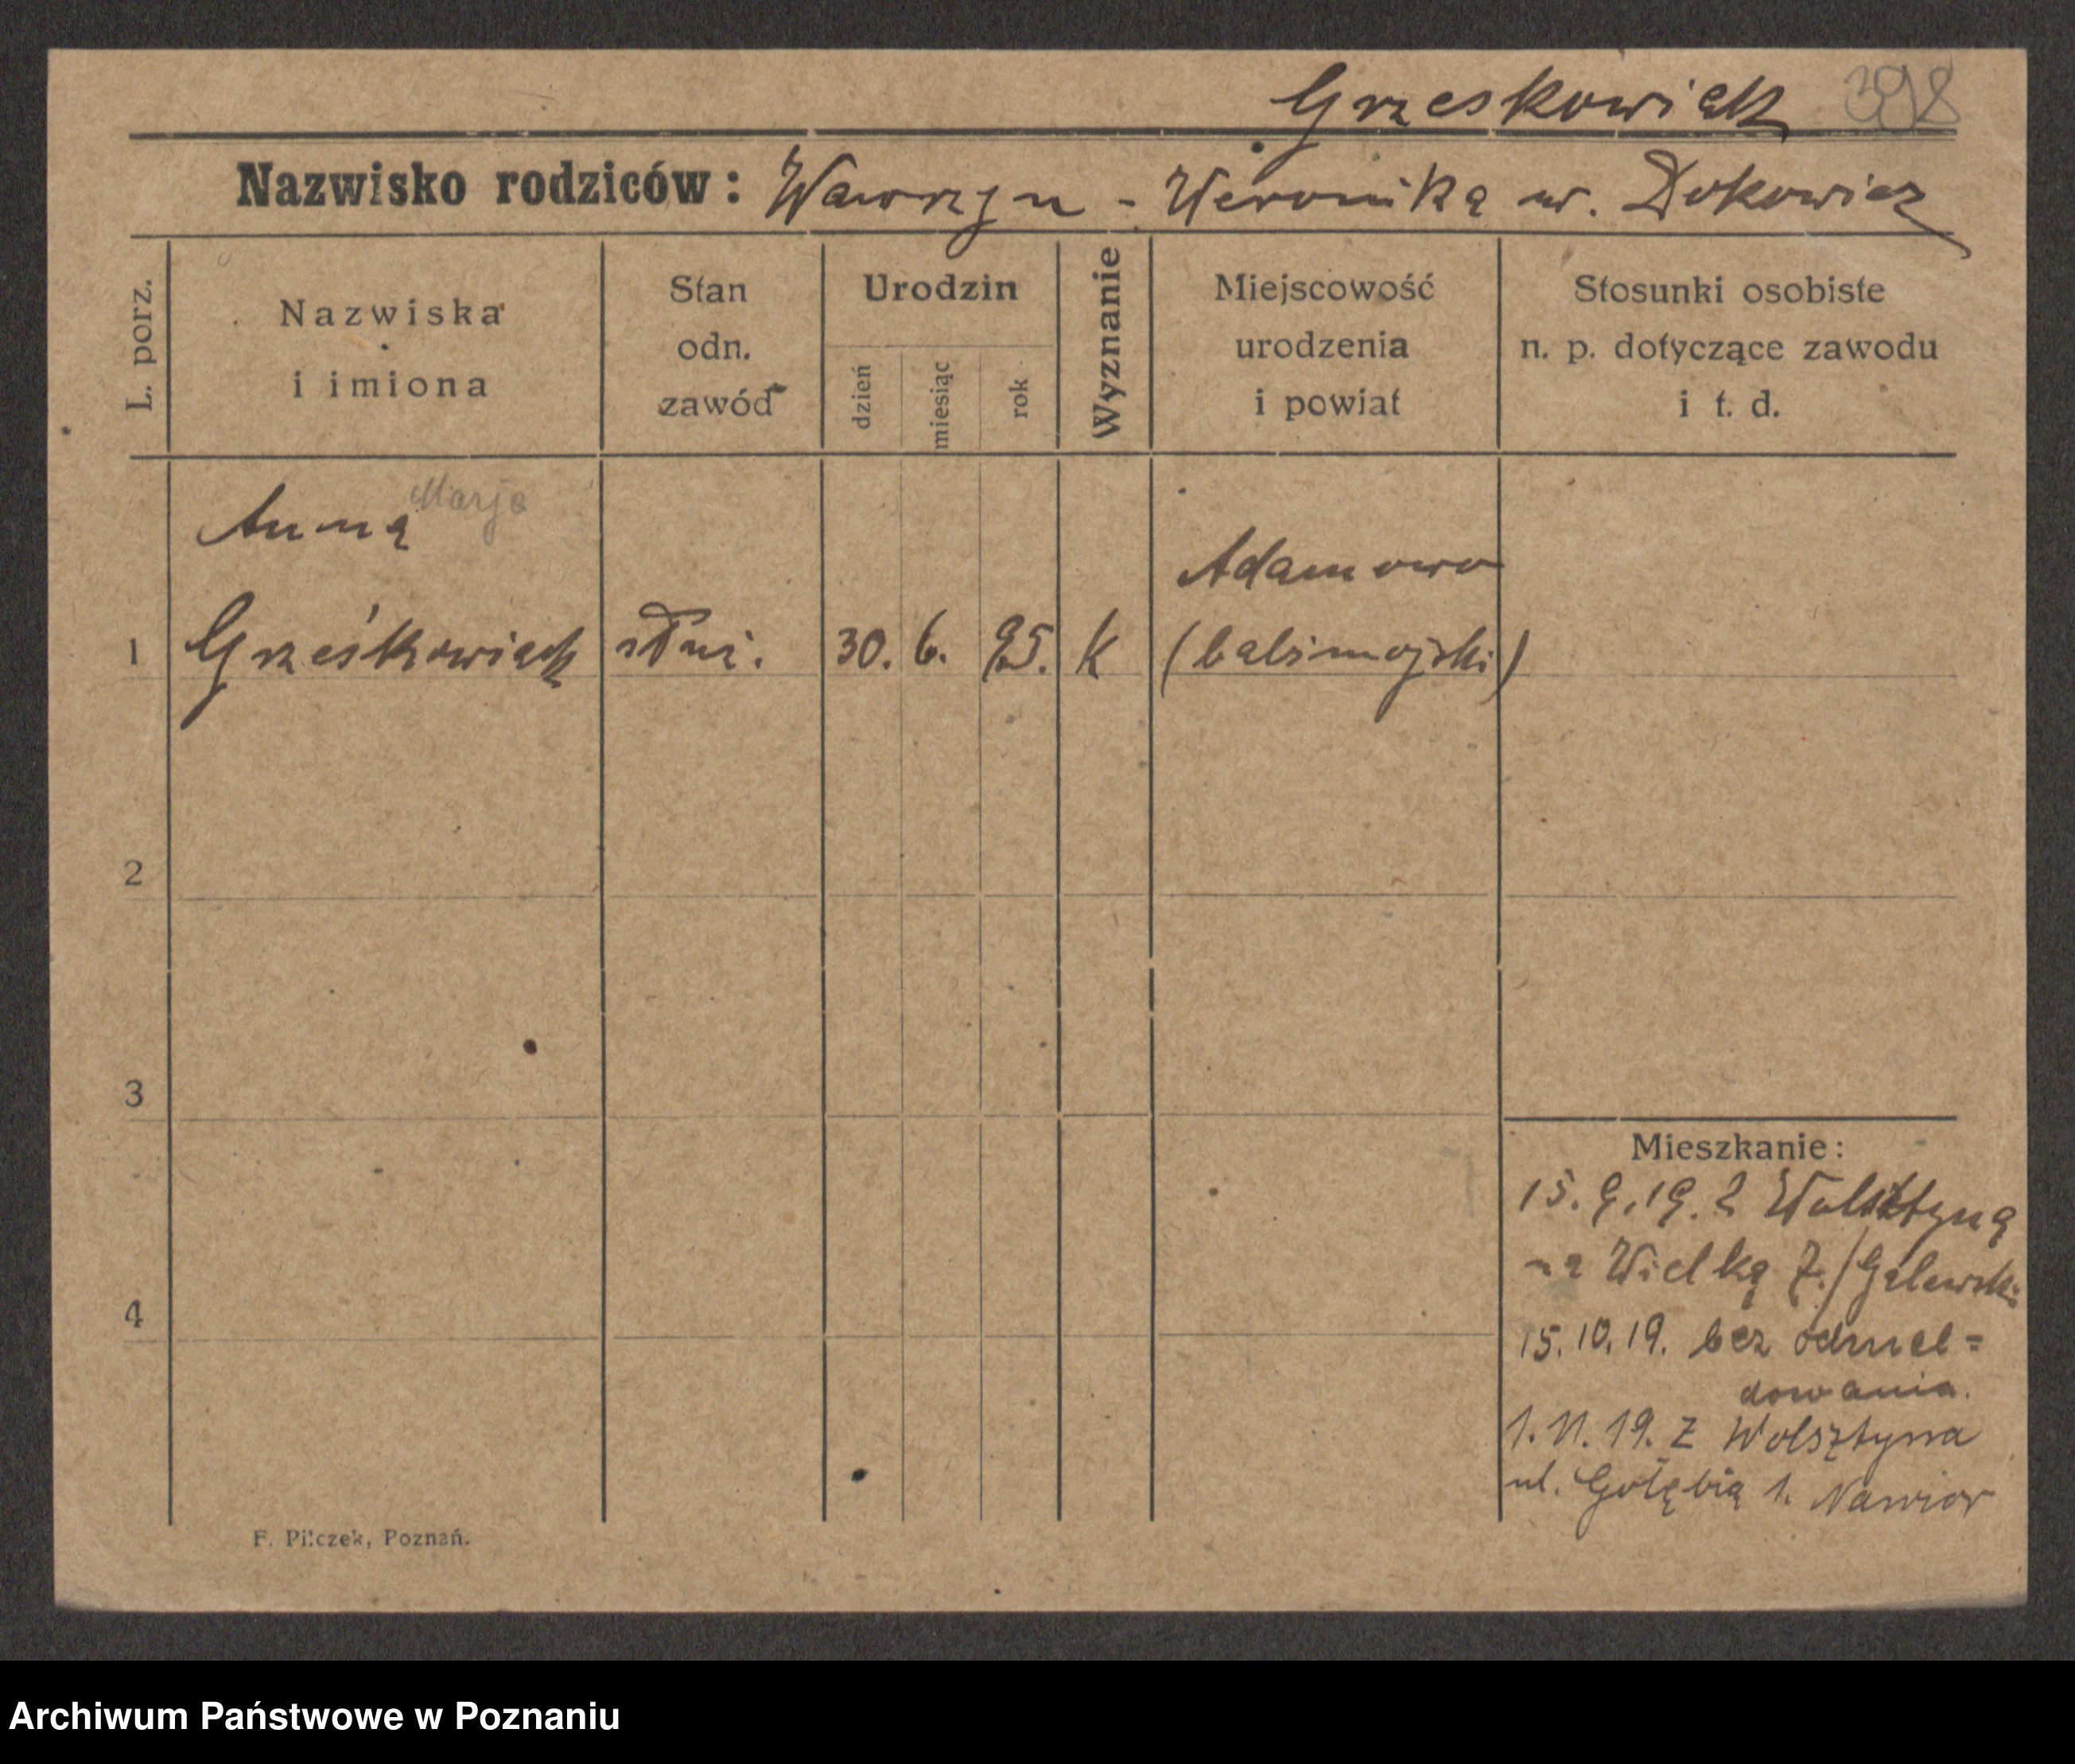 Grześkowiak 398
Nazwisko rodziców: Wawrzyn - Weronika ur. Dokowicz
L. porz.
Nazwiska
i imiona
Stan
odn.
zawód
Urodzin
dzień
miesiąc
rok
Wyznanie
Miejscowość
urodzenia
i powiat
Stosunki osobiste
n. p. dotyczące zawodu
i t. d.
Anna Marja
Adamowo
1 Grześkowiak służ. 30. 6. 95. k (babimojski)
2
3
4
Mieszkanie:
15.9.19. z Wolsztyna
na Wielką 7./Galewski
15.10.19. bez odmel=
dowania.
1.11.19. z Wolsztyna
ul. Gołębia 1. Nawror
F. Pilczek, Poznań.
Archiwum Państwowe w Poznaniu